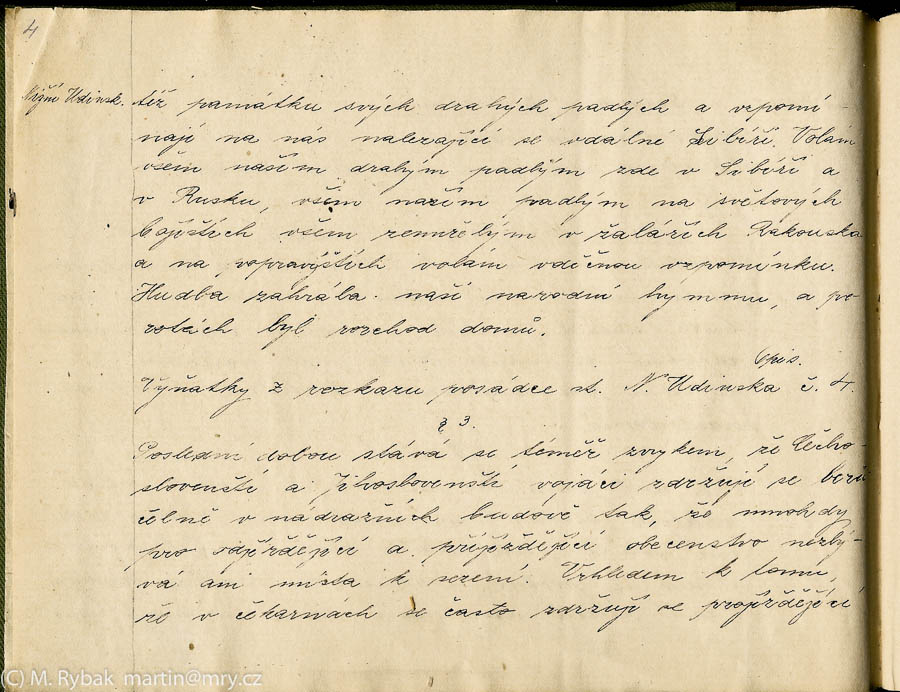 4
Nižní Udinsk.
též památku svých drahých padlých a vzpomí-
nají na nás nalezající se vdálné Sibíři. Volám
všem našim drahým padlým zde v Sibíři a
v Rusku, všem našim padlým na světových
bojištích, všem zemřelým v žalářích Rakouska
a na popravištích volám vděčnou vzpomínku.
Hudba zahrála naší narodní hymmu, a po
rotách byl rozchod domů.
Opis.
Vyňatky z rozkazu posádce st. N. Udinska č. 4.
§ 3.
Poslední dobou stává se téměř zvykem, že Čecho-
slovenští a Jihoslovenští vojáci zdržují se bezú
čelně v nádražních budově tak, že mnohdy
pro odjíždějící a příjíždějící obecenstvo nezbý-
vá ani místa k sezení. Vzhledem k tomu,
že v čekarnách se často zdržují se projíždějící
(C) M. Rybak martin@mry.cz